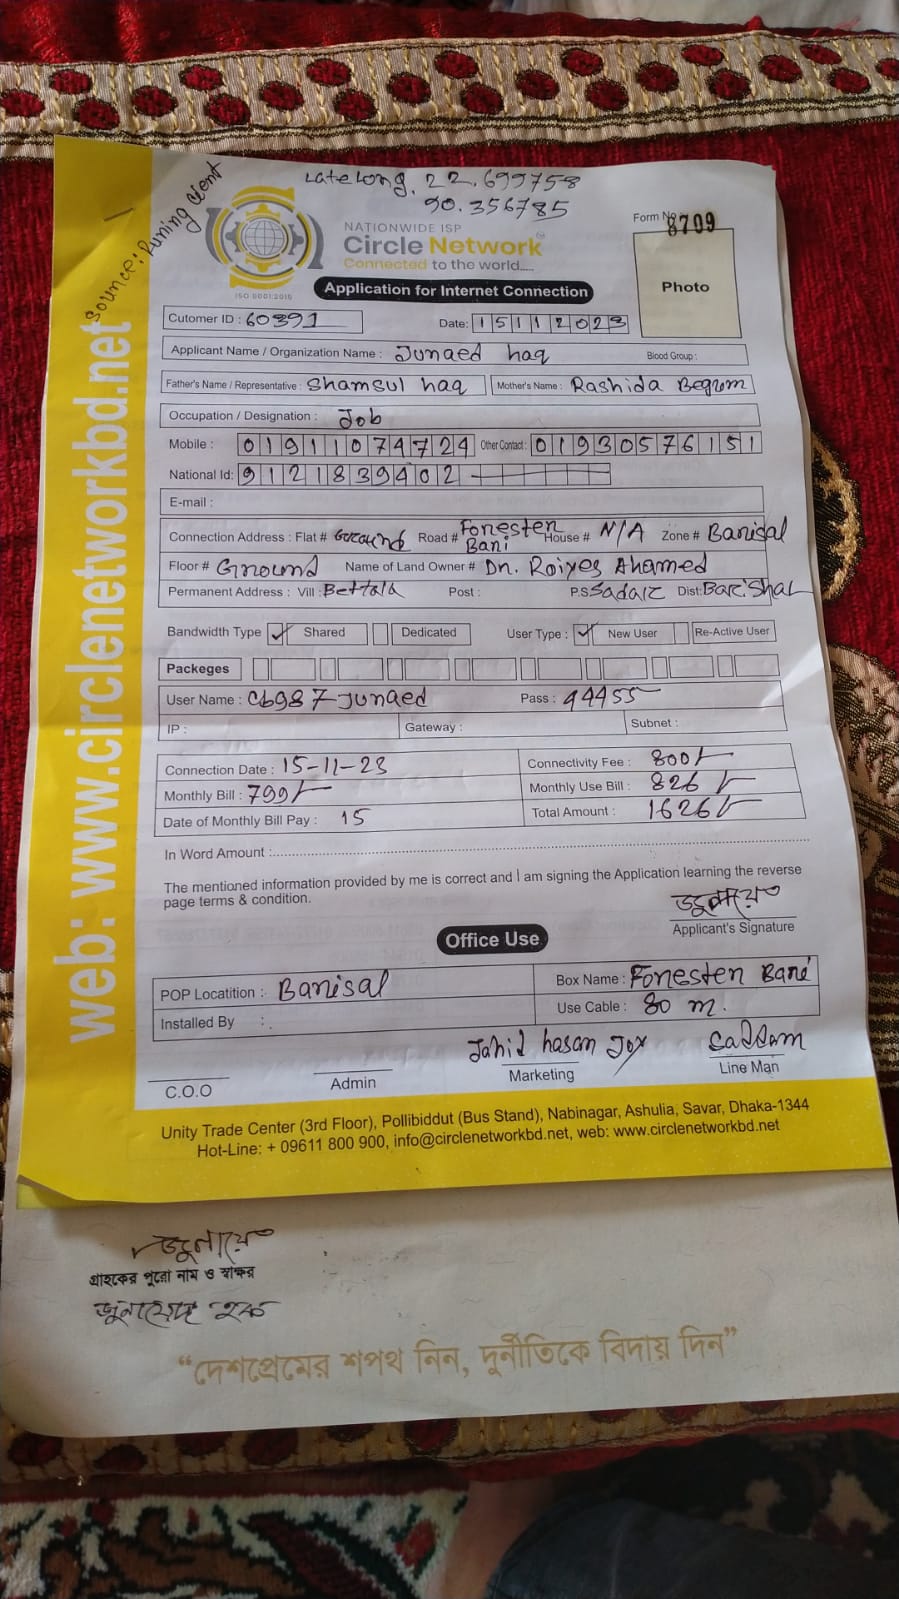 LateLong, 22.699758
90.356785
Source: Runing client
NATIONWIDE ISP
Circle Network
Connected to the world.....
ISO 9001:2015
Form No 8709
Photo
Application for Internet Connection
Cutomer ID : 60391
Date: 15112023
Applicant Name / Organization Name : Junaed haq Blood Group :
Father's Name / Representative : Shamsul haq Mother's Name : Rashida Begum
Occupation / Designation : Job
Mobile : 01911074724 Other Contact : 01930576151
National Id: 9121839402
E-mail :
Connection Address : Flat # Ground Road # Forester Bari House # N/A Zone # Barisal
Floor # Ground Name of Land Owner # Dr. Roiyes Ahamed
Permanent Address : Vill : Bettola Post : P.S Sadar Dist: Barishal
Bandwidth Type ✓ Shared Dedicated User Type : ✓ New User Re-Active User
Packeges
User Name : Cb987-Junaed Pass : 44455
IP : Gateway : Subnet :
Connection Date : 15-11-23 Connectivity Fee : 800/-
Monthly Bill : 799/- Monthly Use Bill : 826/-
Date of Monthly Bill Pay : 15 Total Amount : 1626/-
In Word Amount :
The mentioned information provided by me is correct and I am signing the Application learning the reverse
page terms & condition.
Applicant's Signature
Office Use
POP Locatition : Barisal Box Name : Foresten Bari
Installed By : Use Cable : 80 m.
Jahid hasan Joy Saddam
C.O.O Admin Marketing Line Man
Unity Trade Center (3rd Floor), Pollibiddut (Bus Stand), Nabinagar, Ashulia, Savar, Dhaka-1344
Hot-Line: + 09611 800 900, info@circlenetworkbd.net, web: www.circlenetworkbd.net
web: www.circlenetworkbd.net
গ্রাহকের পুরো নাম ও স্বাক্ষর
জুনায়েদ হক
“দেশপ্রেমের শপথ নিন, দুর্নীতিকে বিদায় দিন”